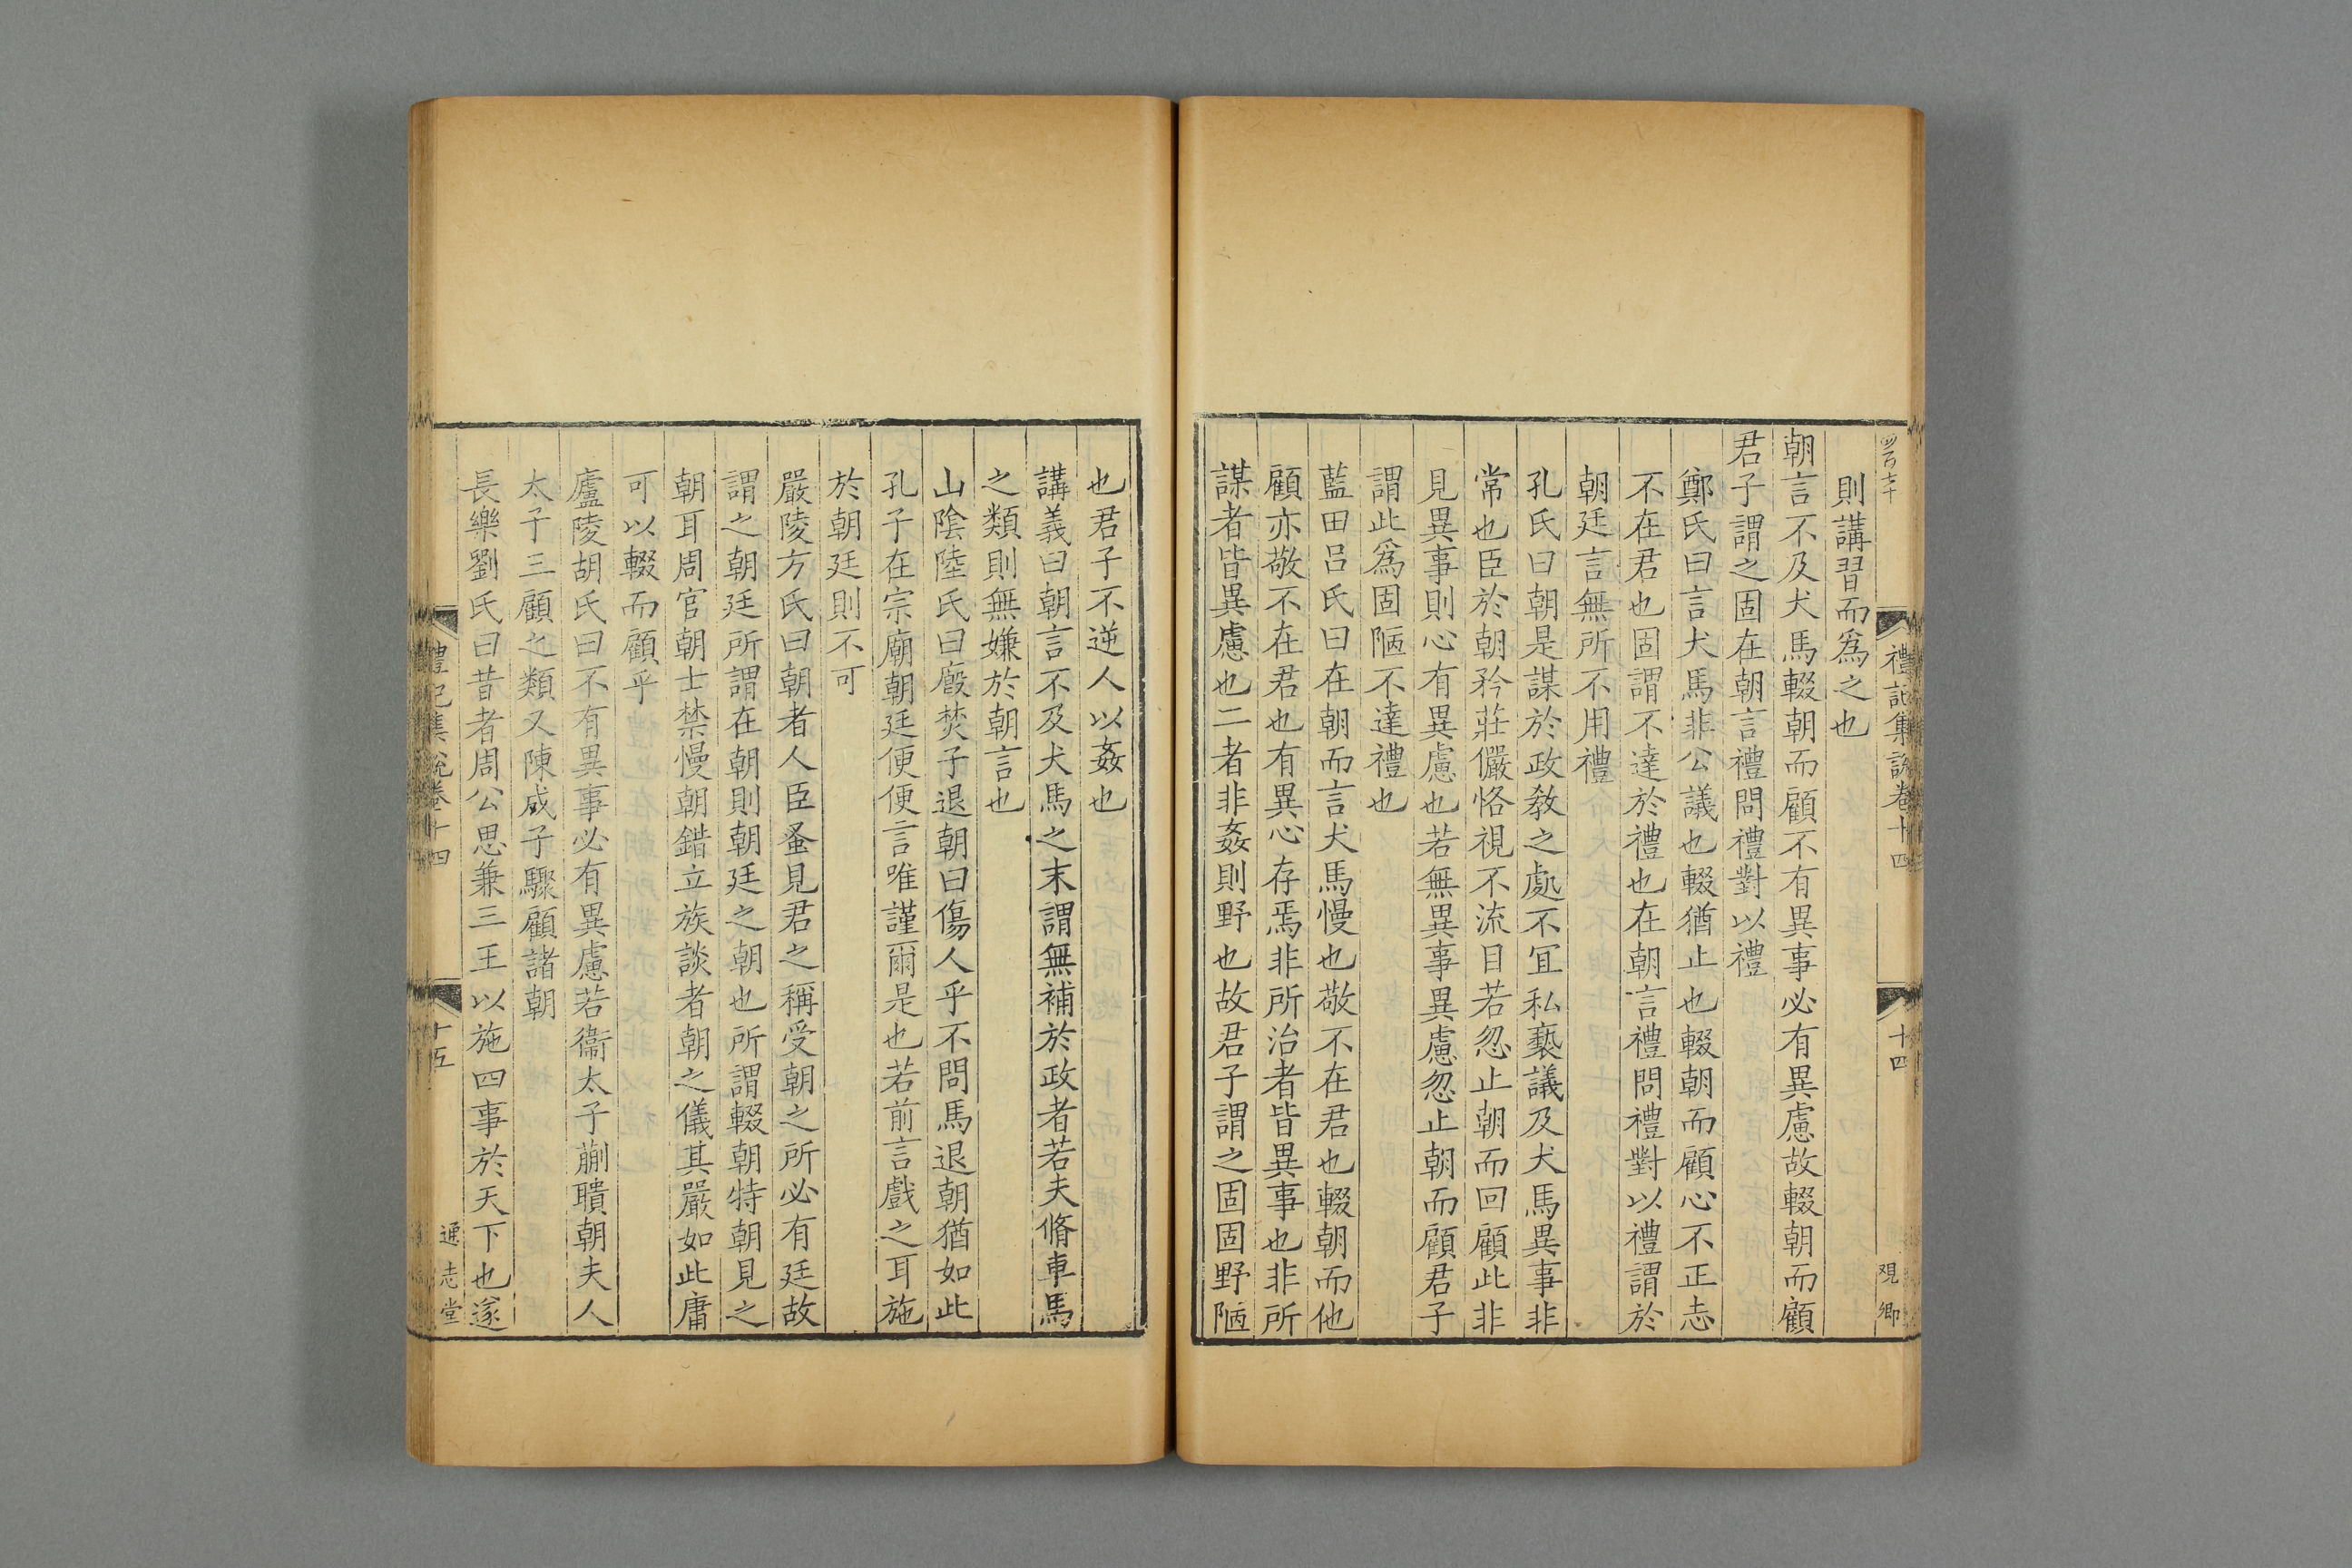 則講習而爲之也
朝言不及犬馬輟朝而顧不有異事必有異慮故輟朝而顧
君子謂之固在朝言禮問禮對以禮
鄭氏曰言犬馬非公議也輟猶止也輟朝而顧心不正志
不在君也固謂不達於禮也在朝言禮問禮對以禮謂於
朝廷言無所不用禮
孔氏曰朝是謀於政敎之處不冝私褻議及犬馬異事非
常也臣於朝矜莊儼恪視不流目若忽止朝而回顧此非
見異事則心有異慮也若無異事異慮忽止朝而顧君子
謂此爲固陋不達禮也
藍田吕氏曰在朝而言犬馬慢也敬不在君也輟朝而他
顧亦敬不在君也有異心存焉非所治者皆異事也非所
謀者皆異慮也二者非姦則野也故君子謂之固固野陋
禮記集說卷十四
十四
覌卿
也君子不逆人以姦也
講義曰朝言不及犬馬之末謂無補於政者若夫脩車馬
之類則無嫌於朝言也
山陰陸氏曰廏焚子退朝曰傷人乎不問馬退朝猶如此
孔子在宗廟朝廷便便言唯謹爾是也若前言戲之耳施
於朝廷則不可
嚴陵方氏曰朝者人臣蚤見君之稱受朝之所必有廷故
謂之朝廷所謂在朝則朝廷之朝也所謂輟朝特朝見之
朝耳周官朝士禁慢朝錯立族談者朝之儀其嚴如此庸
可以輟而顧乎
廬陵胡氏曰不有異事必有異慮若衞太子蒯聵朝夫人
太子三顧之類又陳成子驟顧諸朝
長樂劉氏曰昔者周公思兼三王以施四事於天下也遂
禮記集說卷十四
十五
通志堂